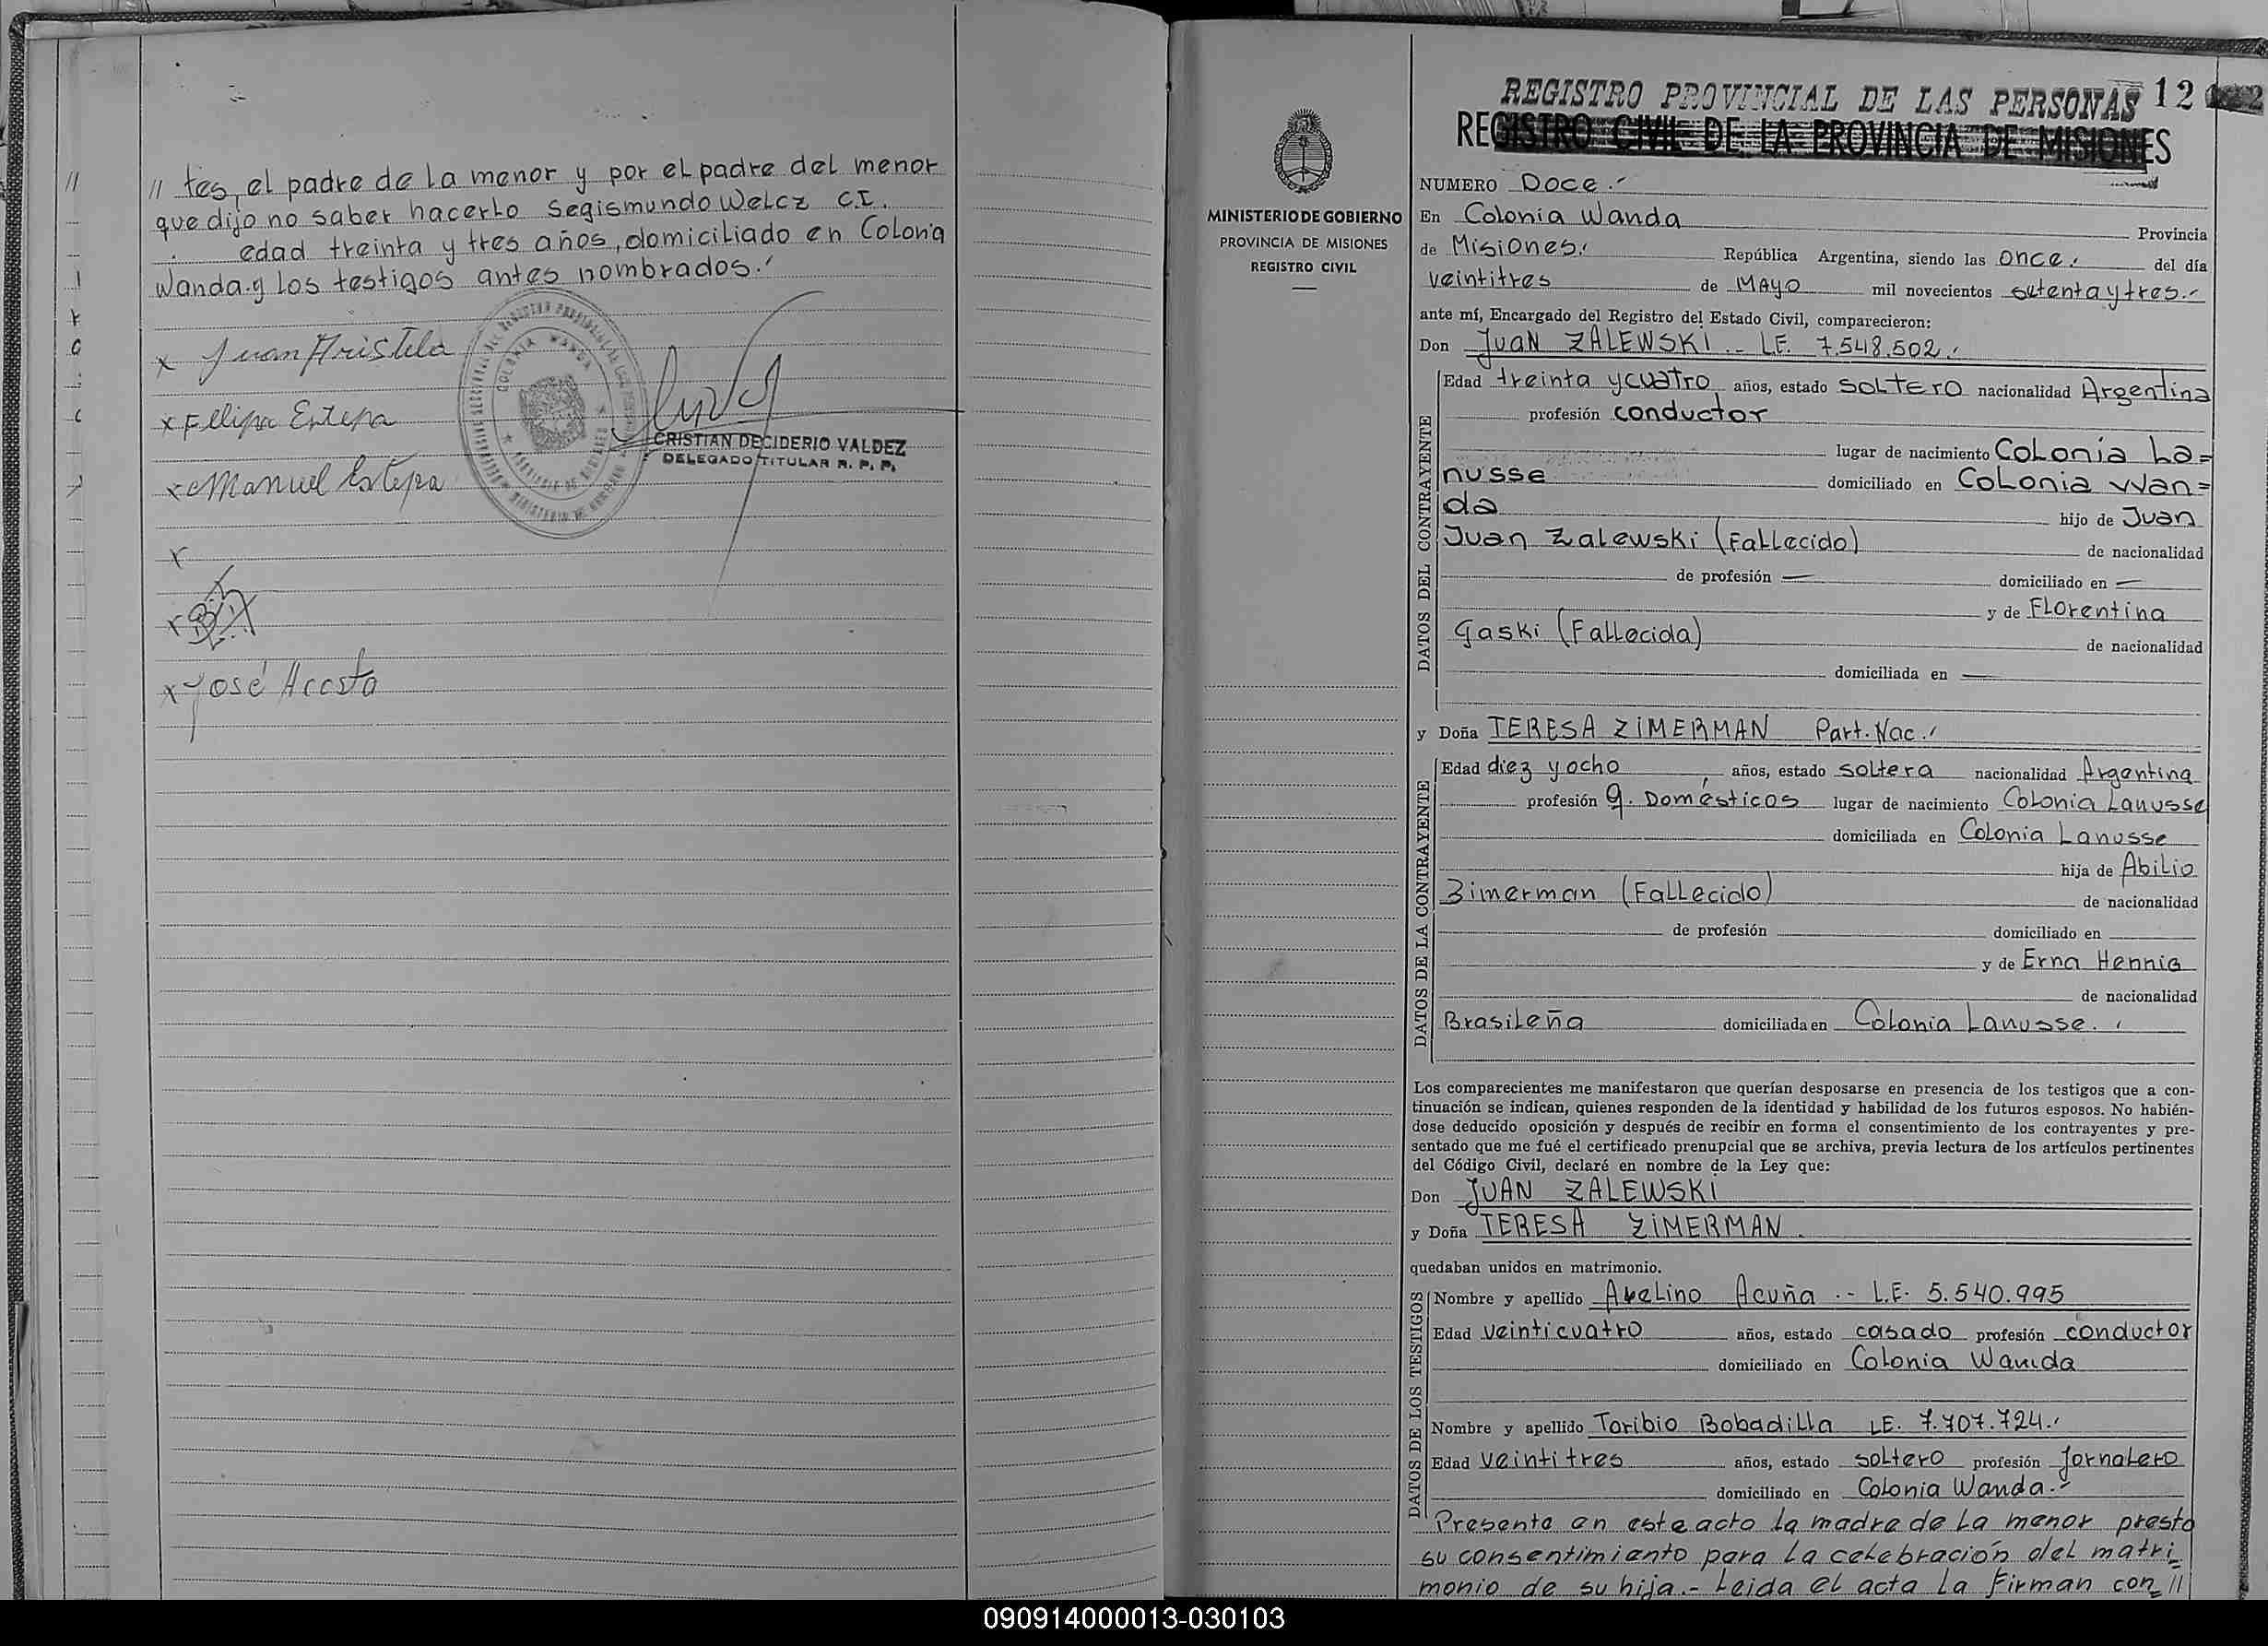 // tes, el padre de la menor y por el padre del menor
que dijo no saber hacerlo Segismundo Welcz C.I.
edad treinta y tres años, domiciliado en Colonia
Wanda y los testigos antes nombrados.
x Juan
x Fellipa Estepa
x Manuel Estepa
COLONIA WANDA
CRISTIAN DECIDERIO VALDEZ
DELEGADO TITULAR R. P. P.
x
x
x José Acosta
REGISTRO PROVINCIAL DE LAS PERSONAS 12
REGISTRO CIVIL DE LA PROVINCIA DE MISIONES
MINISTERIO DE GOBIERNO
PROVINCIA DE MISIONES
REGISTRO CIVIL
NUMERO Doce.-
En Colonia Wanda Provincia
de Misiones. República Argentina, siendo las once. del día
veintitres de MAYO mil novecientos setenta y tres.-
ante mí, Encargado del Registro del Estado Civil, comparecieron:
Don JUAN ZALEWSKI.- L.E. 7.548.502.
DATOS DEL CONTRAYENTE
Edad treinta y cuatro años, estado SOLTERO nacionalidad Argentina
profesión conductor
lugar de nacimiento Colonia La=
nusse domiciliado en Colonia Wan=
da hijo de Juan
Juan Zalewski (Fallecido) de nacionalidad
de profesión — domiciliado en —
y de Florentina
Gaski (Fallecida) de nacionalidad
domiciliada en —
y Doña TERESA ZIMERMAN Part. Nac.
DATOS DE LA CONTRAYENTE
Edad diez y ocho, años, estado soltera nacionalidad Argentina
profesión q. Domésticos lugar de nacimiento Colonia Lanusse
domiciliada en Colonia Lanusse
hija de Abilio
Zimerman (Fallecido) de nacionalidad
de profesión domiciliado en
y de Erna Hennig
de nacionalidad
Brasileña domiciliada en Colonia Lanusse.
Los comparecientes me manifestaron que querían desposarse en presencia de los testigos que a con-
tinuación se indican, quienes responden de la identidad y habilidad de los futuros esposos. No habién-
dose deducido oposición y después de recibir en forma el consentimiento de los contrayentes y pre-
sentado que me fué el certificado prenupcial que se archiva, previa lectura de los artículos pertinentes
del Código Civil, declaré en nombre de la Ley que:
Don JUAN ZALEWSKI
y Doña TERESA ZIMERMAN.
quedaban unidos en matrimonio.
DATOS DE LOS TESTIGOS
Nombre y apellido Avelino Acuña .- L.E. 5.540.995
Edad veinticuatro años, estado casado profesión conductor
domiciliado en Colonia Wanda
Nombre y apellido Toribio Bobadilla LE. 7.707.724.
Edad veintitres años, estado soltero profesión Jornalero
domiciliado en Colonia Wanda.-
Presente en este acto la madre de la menor presto
su consentimiento para la celebración del matri=
monio de su hija.- Leida el acta la Firman con= //
090914000013-030103